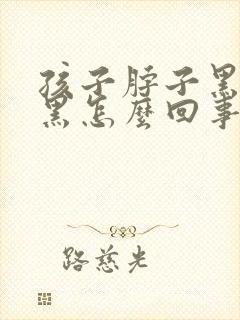 孩子脖子黑
黑怎麼回事
路慈光